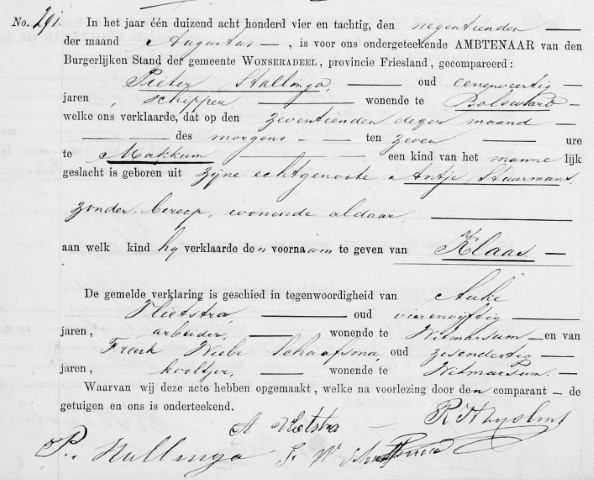 No. 291. In het jaar één duizend acht honderd vier en tachtig, den negentienden
der maand Augustus —, is voor ons ondergeteekende AMBTENAAR van den
Burgerlijken Stand der gemeente WONSERADEEL, provincie Friesland, gecompareerd:
Pieter Stallinga, oud eenenveertig
jaren, schipper — wonende te Bolsward —
welke ons verklaarde, dat op den zeventienden dezer maand —
— des morgens — ten zeven — ure
te Makkum — een kind van het mannelijk
geslacht is geboren uit zijne echtgenoote Antje Stuurmans,
zonder beroep, wonende aldaar, —
aan welk kind hij verklaarde den voornaam te geven van Klaas. —
De gemelde verklaring is geschied in tegenwoordigheid van Auke
Vlietstra, — oud vierenvijftig
jaren, arbeider, — wonende te Witmarsum — en van
Freerk Wiebe Schaafsma, oud zesendertig —
jaren, kooltjer, — wonende te Witmarsum. —
Waarvan wij deze acte hebben opgemaakt, welke na voorlezing door den comparant — de
getuigen en ons is onderteekend.
A Vlietstra
P. Stallinga F. W. Schaafsma